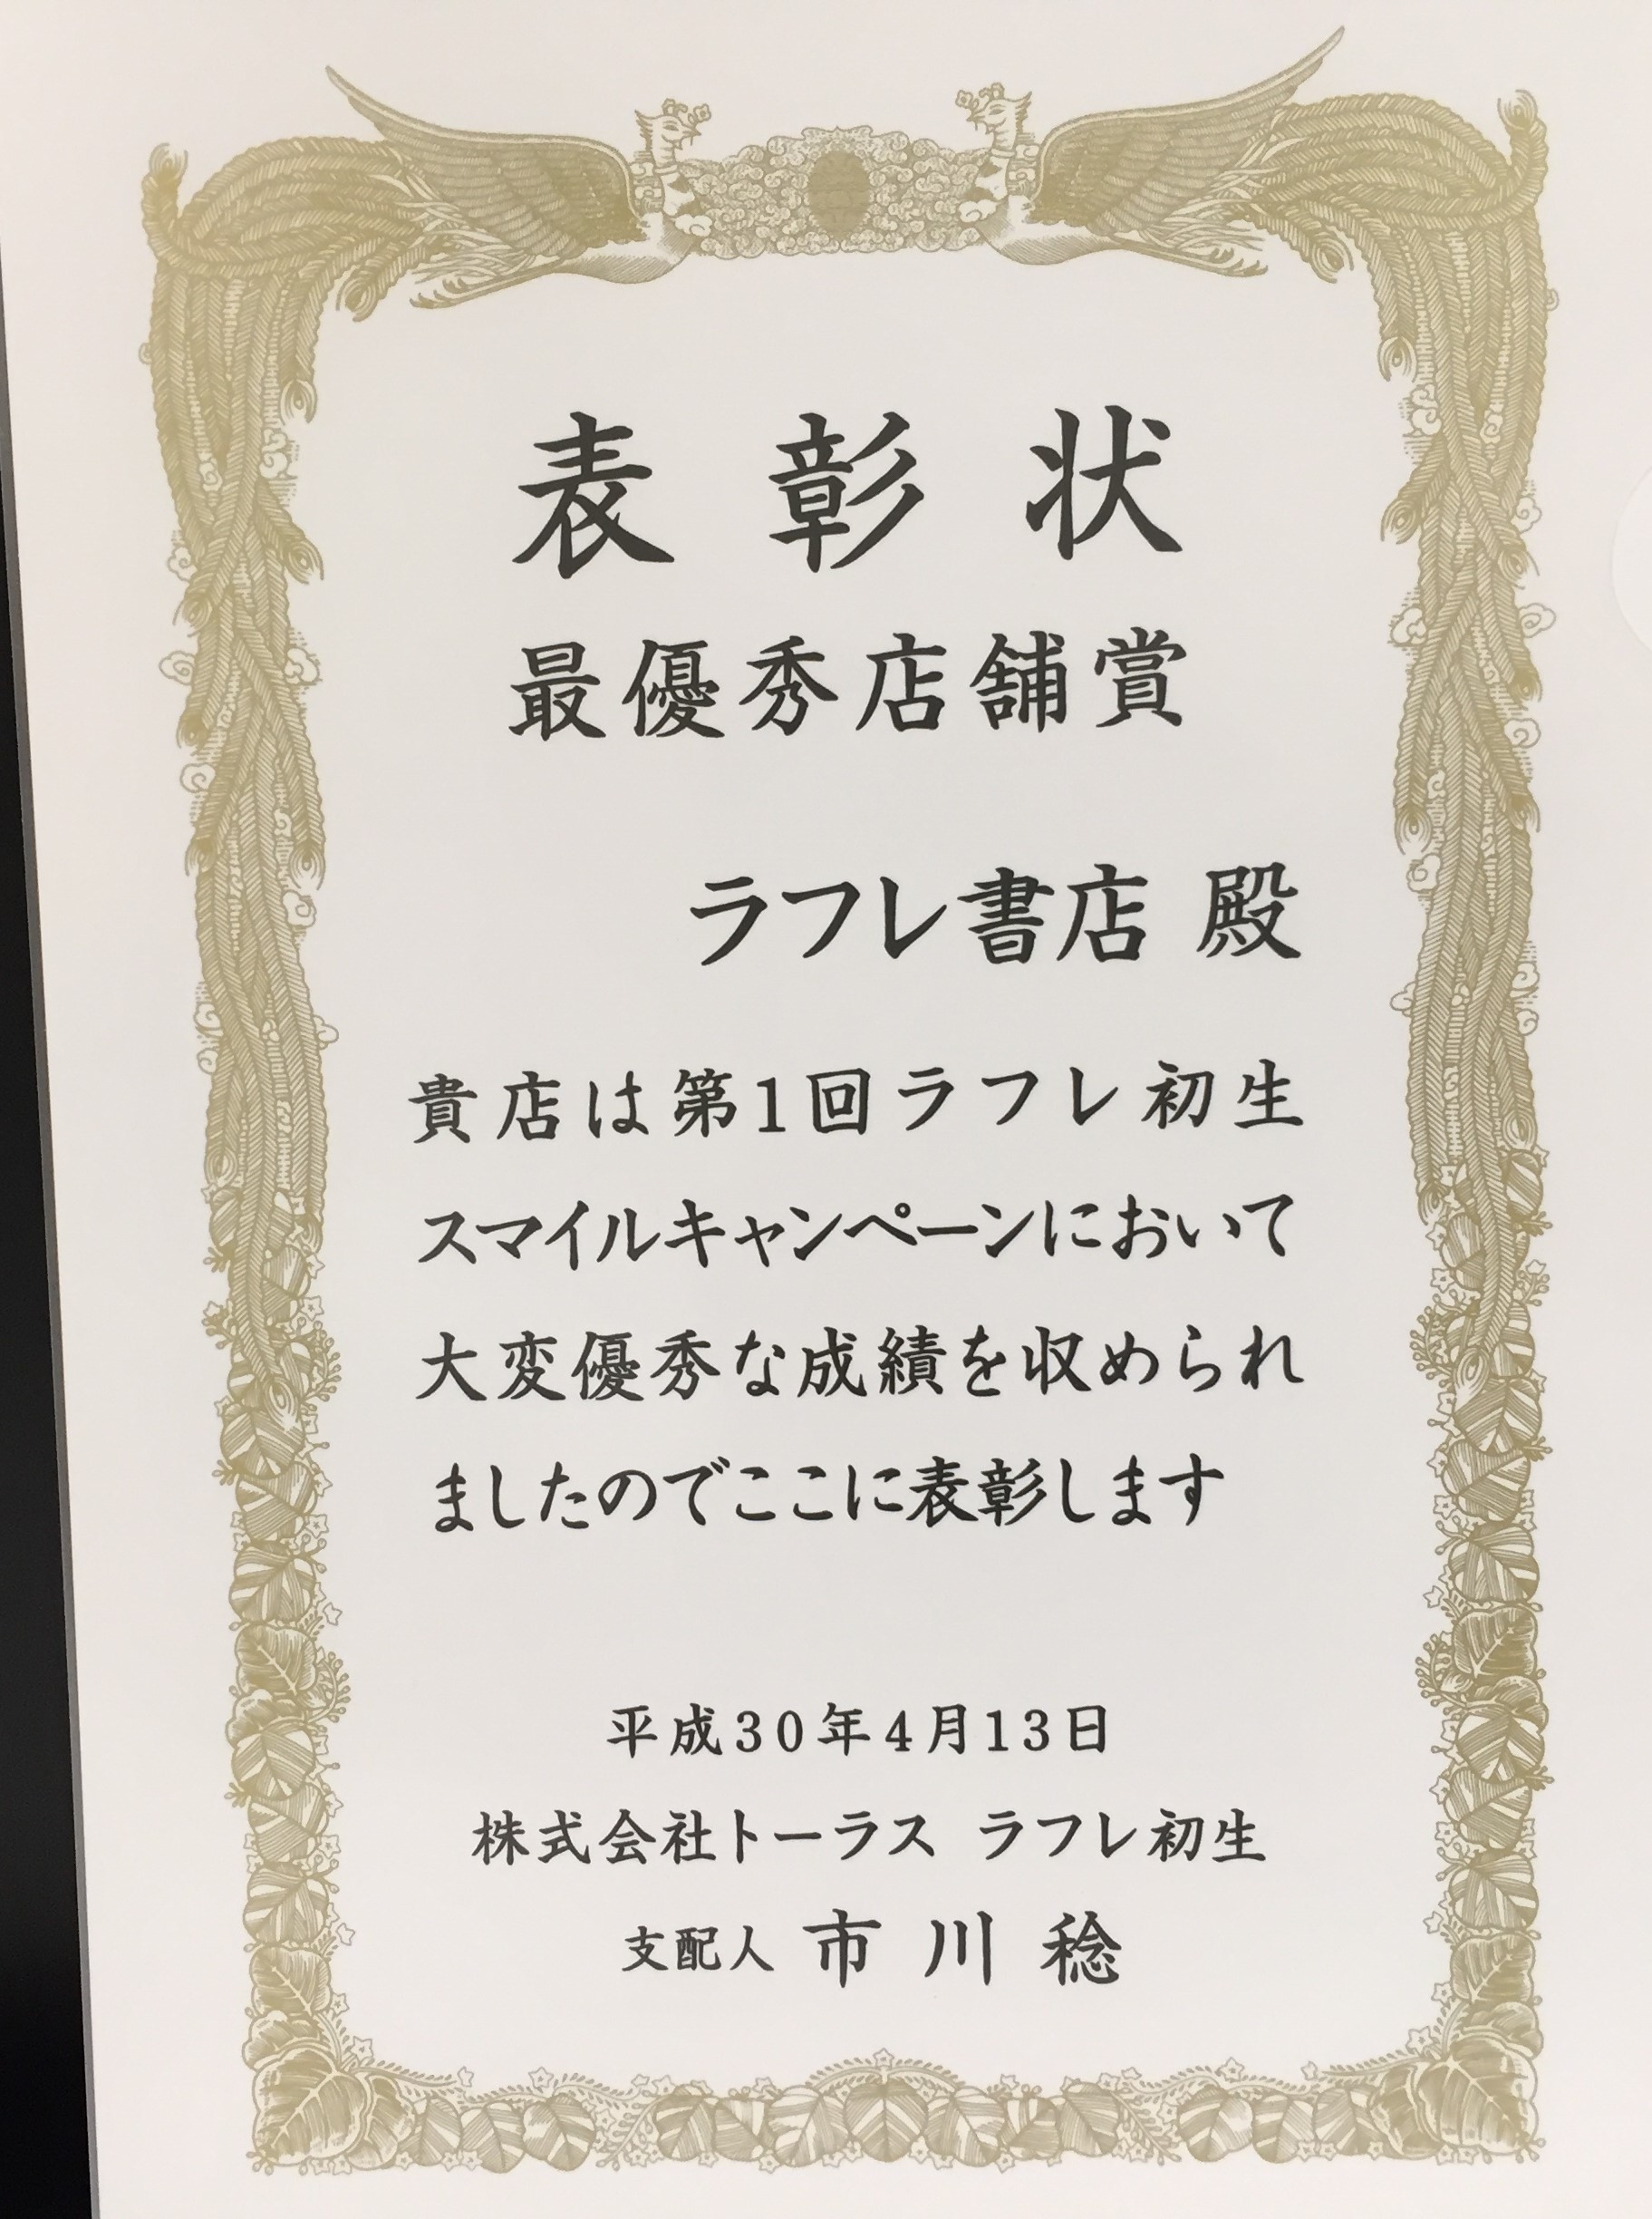 表彰状
最優秀店舗賞
ラフレ書店 殿
貴店は第1回ラフレ初生
スマイルキャンペーンにおいて
大変優秀な成績を収められ
ましたのでここに表彰します
平成30年4月13日
株式会社トーラス ラフレ初生
支配人 市川稔